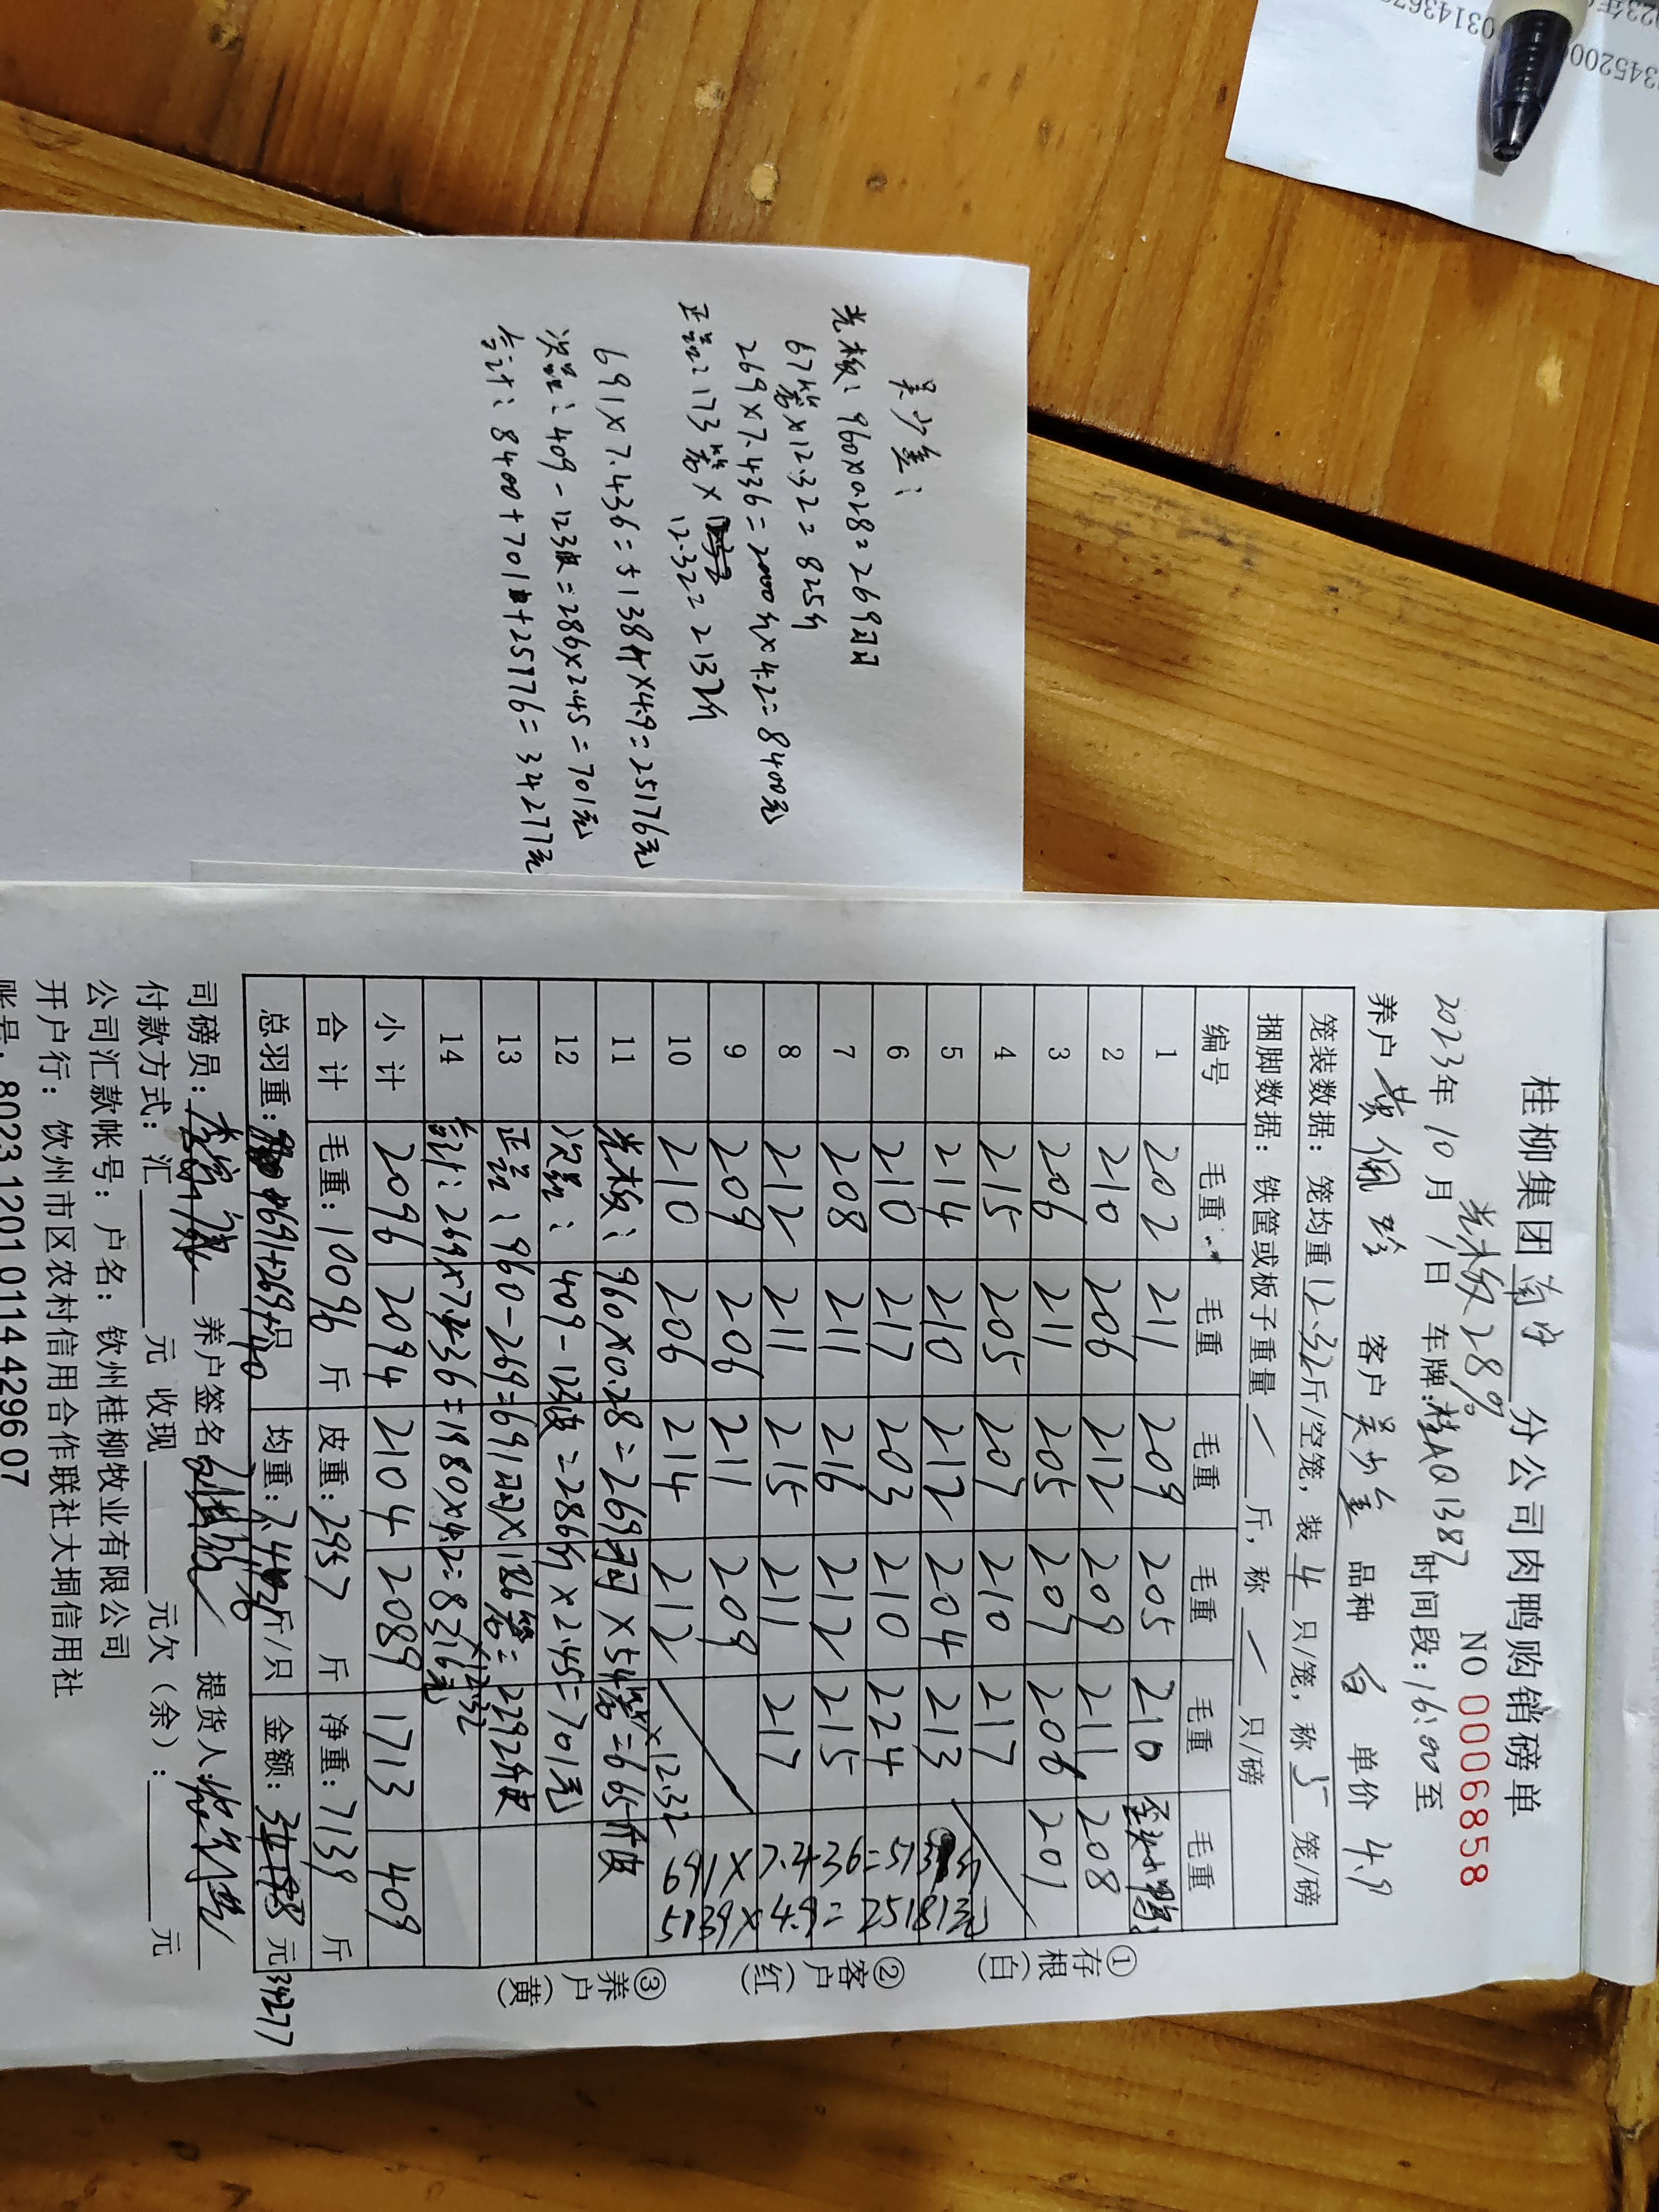 桂柳集团 分公司肉鸭购销磅单
光板28%
NO 0006858
2023年10月1日 车牌:桂AQ1387 时间段:16:00至
养户 黄佩玲 客户 吴少金 品种 白 单价 4.9
笼装数据:笼均重12.32斤/空笼,装4只/笼,称5笼/磅
捆脚数据:铁筐或板子重量 / 斤,称 / 只/磅
编号 毛重 毛重 毛重 毛重 毛重 毛重
1 202 211 209 205 210
2 210 206 212 209 211 208
3 206 211 205 207 206 201
4 215 205 207 210 217
5 214 210 212 204 213
6 210 217 203 210 224
7 208 211 216 212 215
8 212 211 215 211 217
9 209 206 211 209
10 210 206 214 212
691×7.436=5139斤
5139×4.9=25181元
11 光板:960×0.28=269羽×54笼×12.32=665斤皮
12 次品:409-123皮=286斤×2.45=701元
13 正品:960-269=691羽×186笼×12.32=2292斤皮
14 合计:269×7.436=1980×4.2=8316元
小计 2096 2094 2104 2089 1713 409
合计 毛重:10096斤 皮重:2957斤 净重:7139斤
总羽重:691+269+40只 均重:7.436斤/只 金额: 元 34277
司磅员: 养户签名: 提货人:
付款方式:汇 元 收现 元欠(余): 元
公司汇款帐号:户名:钦州桂柳牧业有限公司
开户行:钦州市区农村信用合作联社大垌信用社
账号:802312010114429607
①存根(白) ②客户(红) ③养户(黄)
吴少金:
光板:960×0.28=269羽
67笼×12.32=825斤
269×7.436=2000斤×4.2=8400元
正品:173笼×12.32=2132斤
691×7.436=5138斤×4.9=25176元
次品:409-123皮=286×2.45=701元
合计:8400+701+25176=34277元